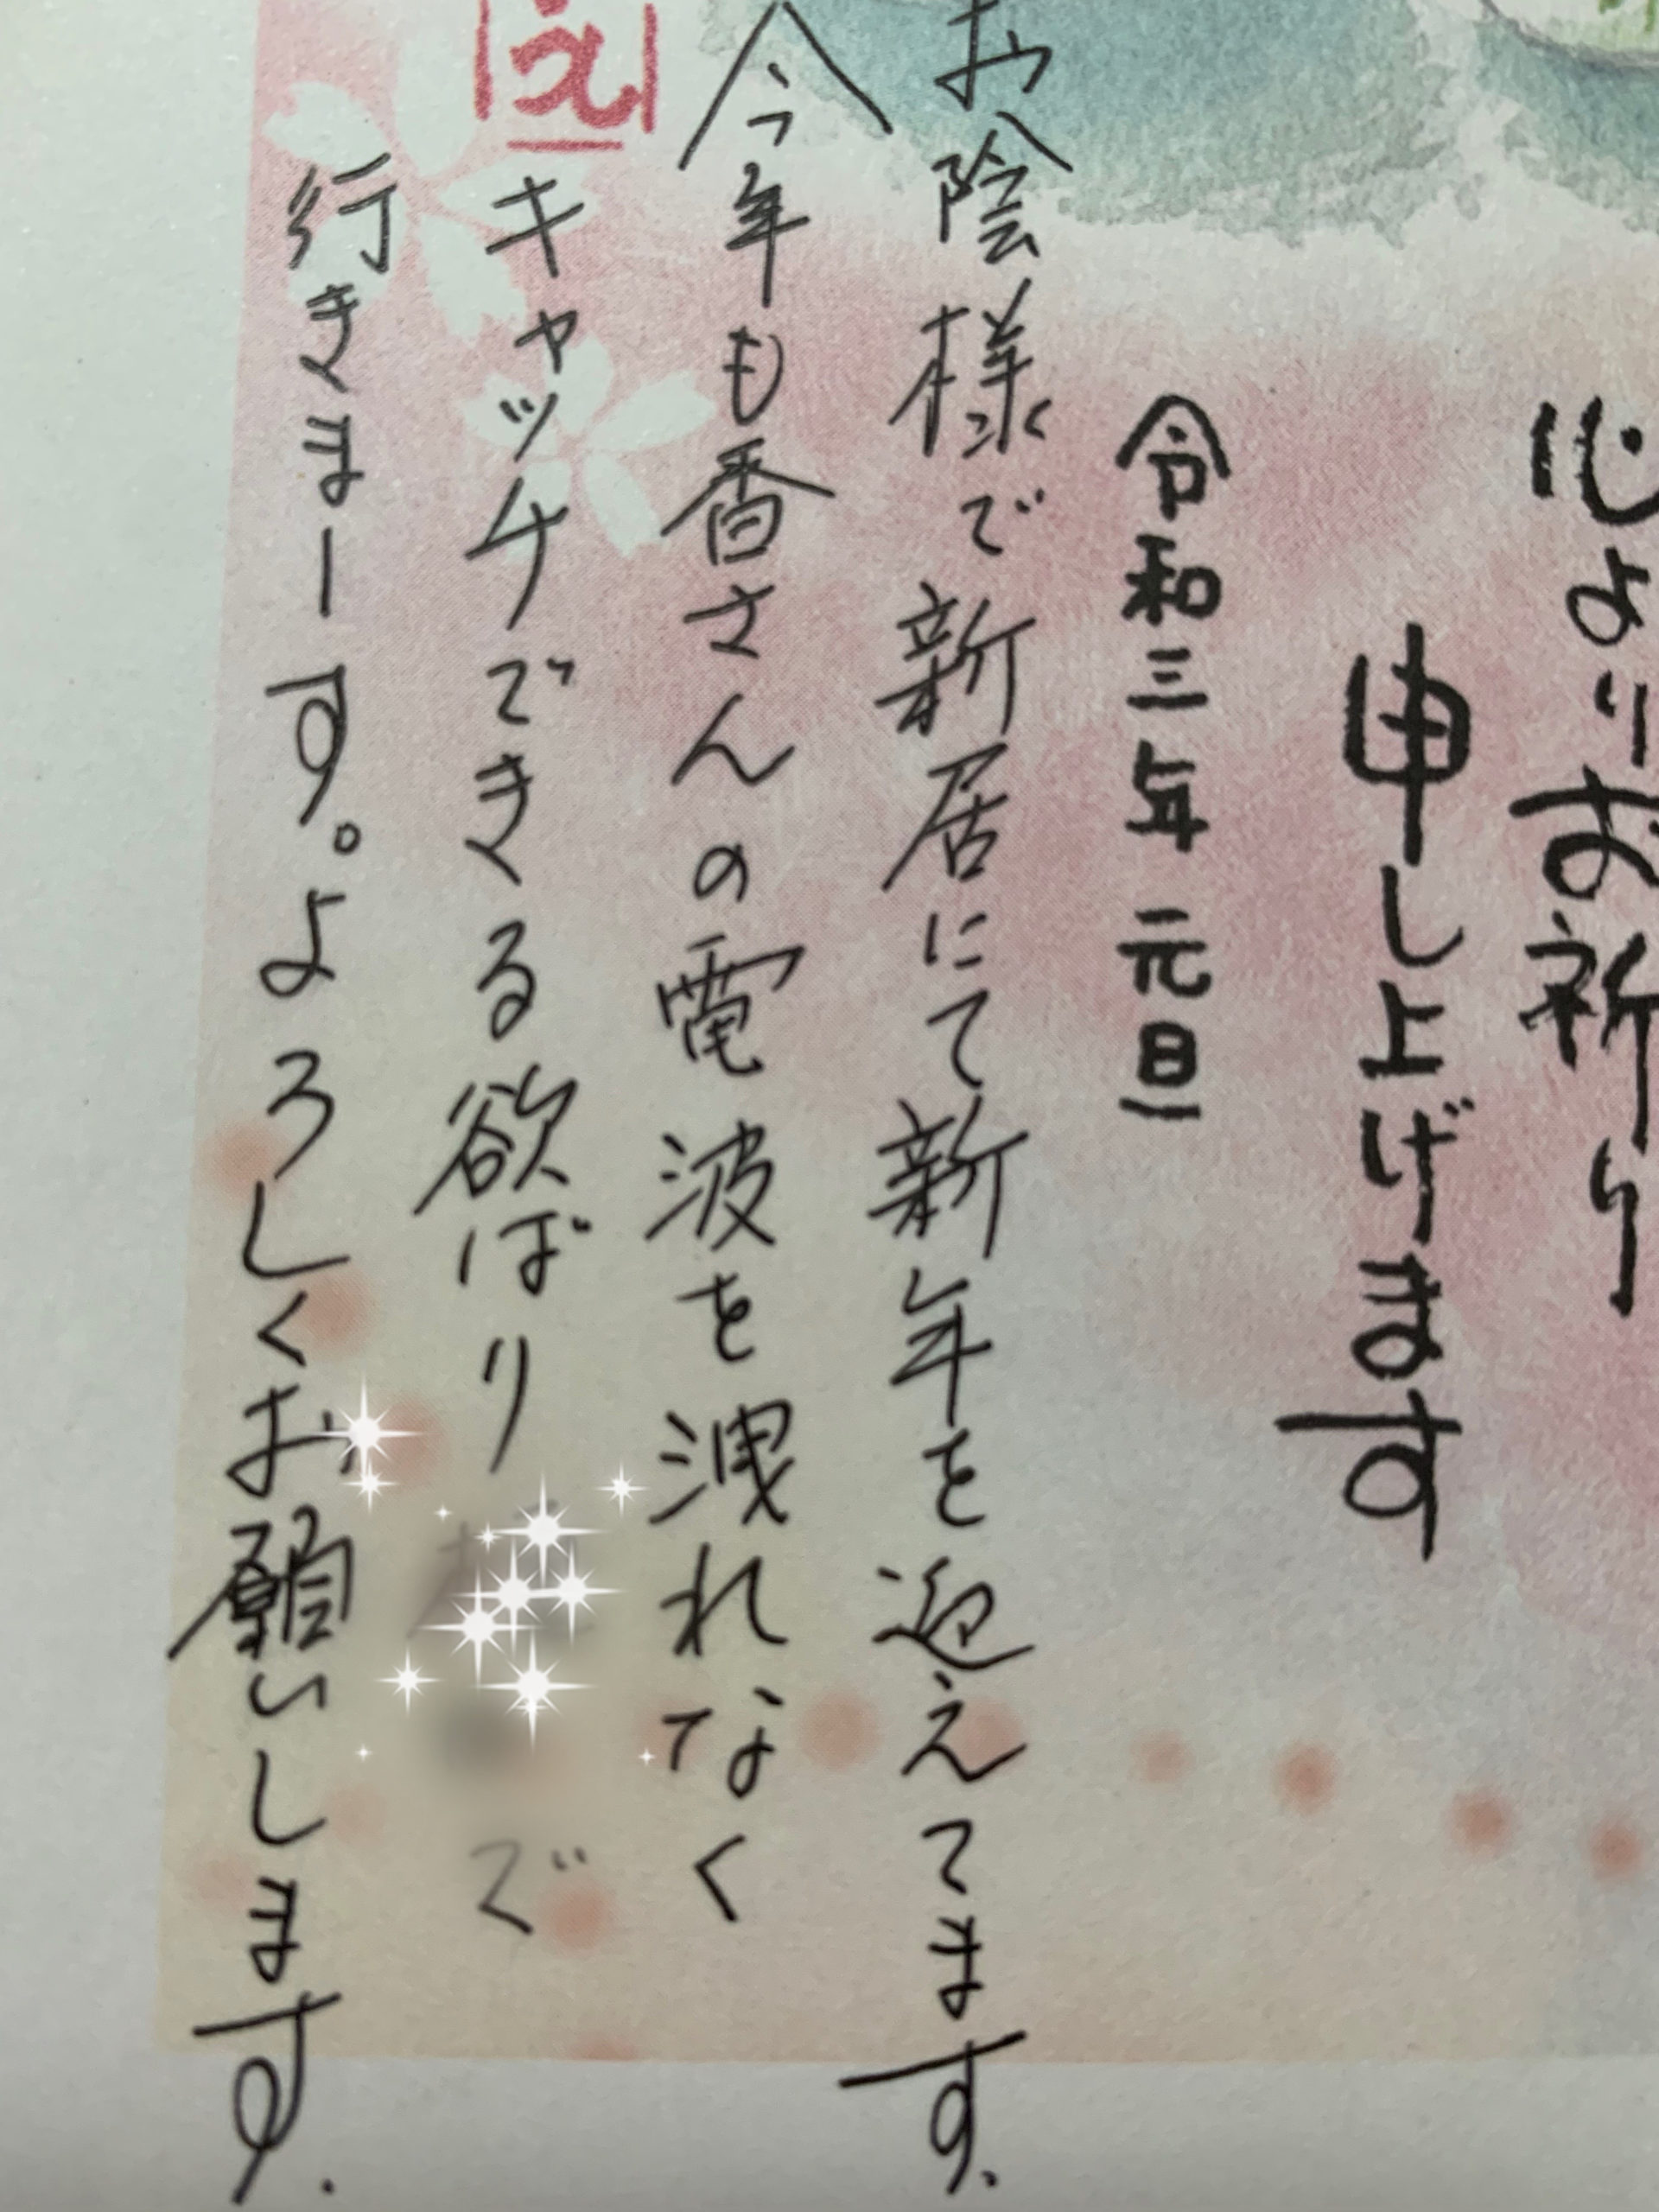 心よりお祈り
申し上げます
令和三年 元旦
お陰様で新居にて新年を迎えてます、
今年も香さんの電波を洩れなく
キャッチできる欲ばり
で
行きまーす。よろしくお願いします、